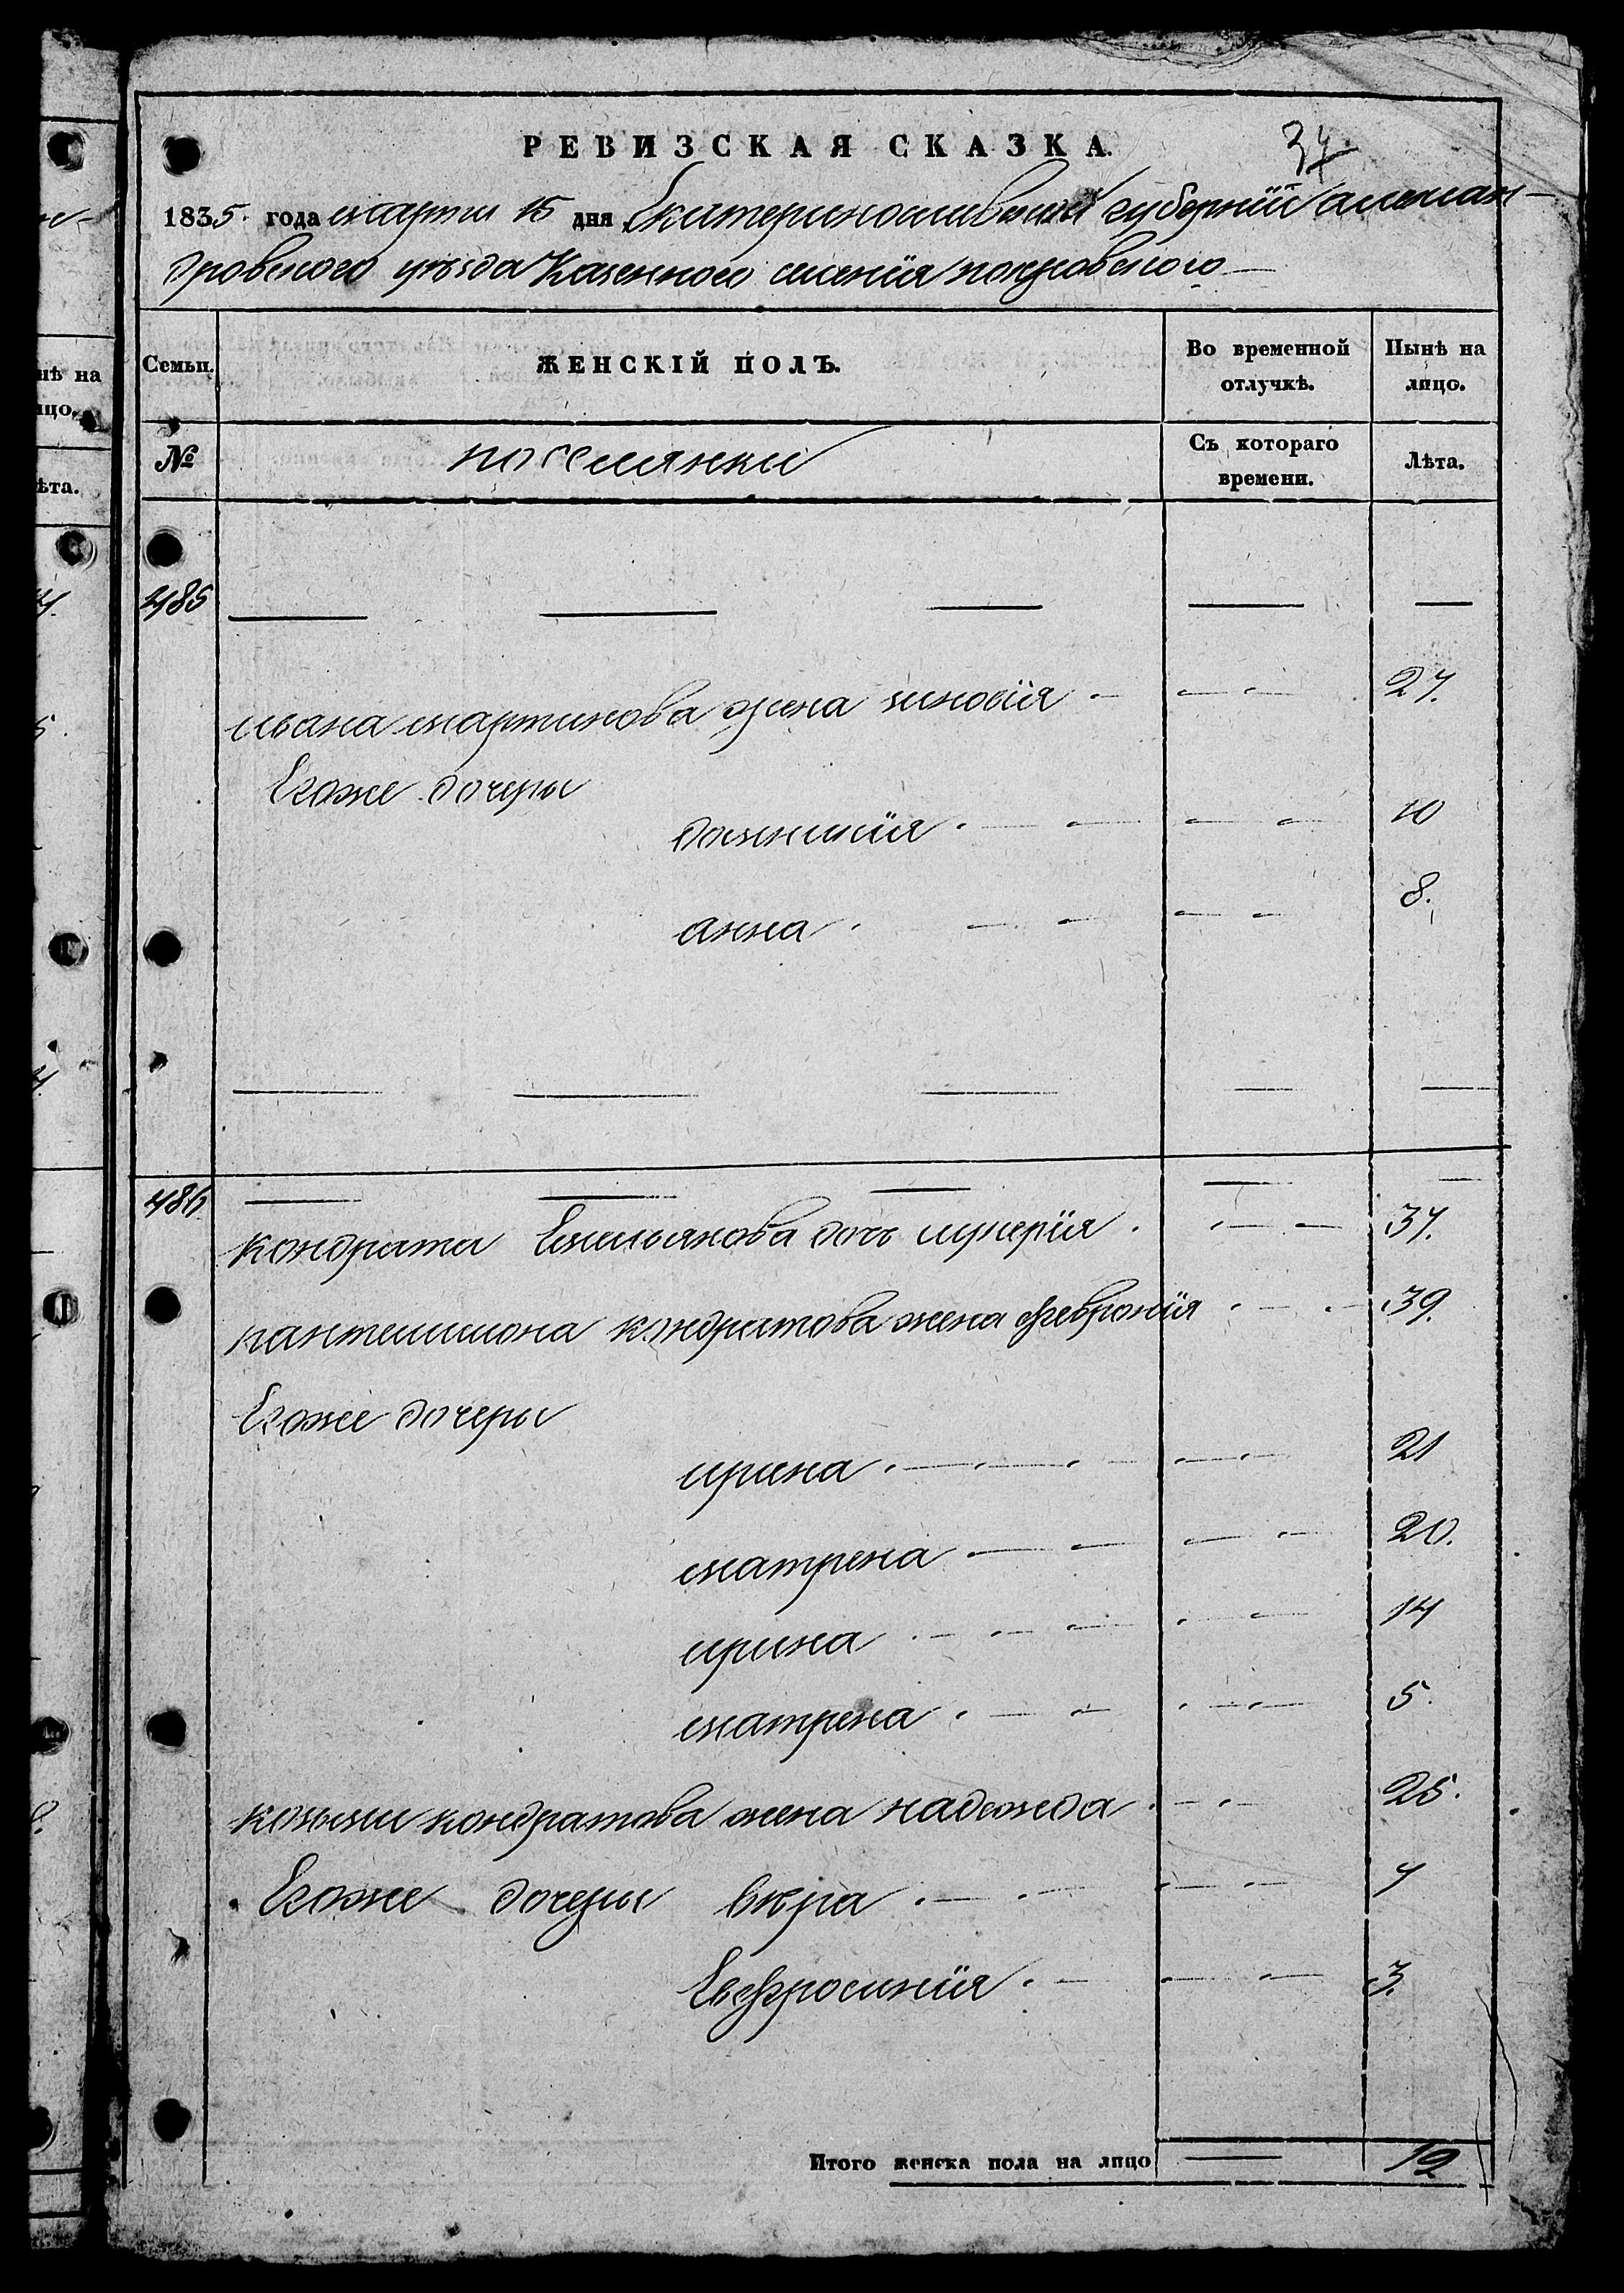 РЕВИЗСКАЯ СКАЗКА.
34
1835. года марта 15 дня Екатеринославской губернии александ-
ровского уезда Казенного селения покровского
Семьи. ЖЕНСКІЙ ПОЛЪ. Во временной отлучкѣ. Нынѣ на лицо.
№ поселянки Съ котораго времени. Лѣта.
485
ивана мартинова жена зиновія 27.
Егоже дочеры
домникія 10
анна 8.
486
кондрата Емельянова дочь гликерія 37.
пантелимона кондратова жена февронія 39.
Егоже дочеры
ирина 21
матрена 20.
ирина 14
матрена 5.
козьмы кондратова жена надежда 25.
Егоже дочеры вѣра 7
Евфросинія 3.
Итого женска пола на лицо 12
нѣ на
ицо.
ѣта.